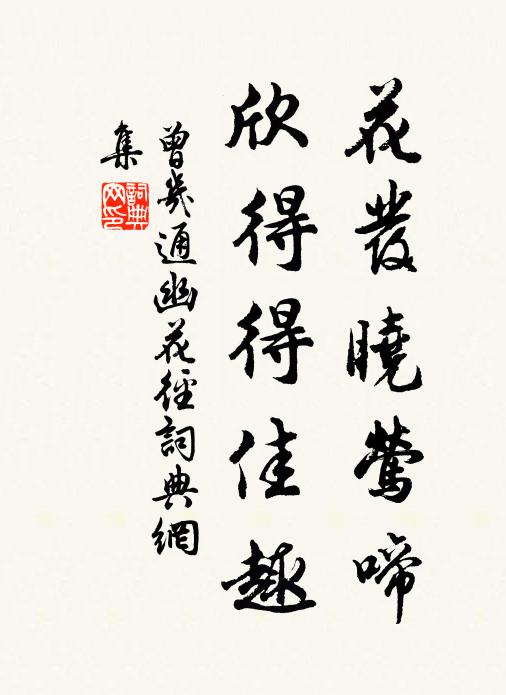 花發曉鶯啼
欣得得佳趣
曾幾通幽花徑詞典網
集
詞典網印